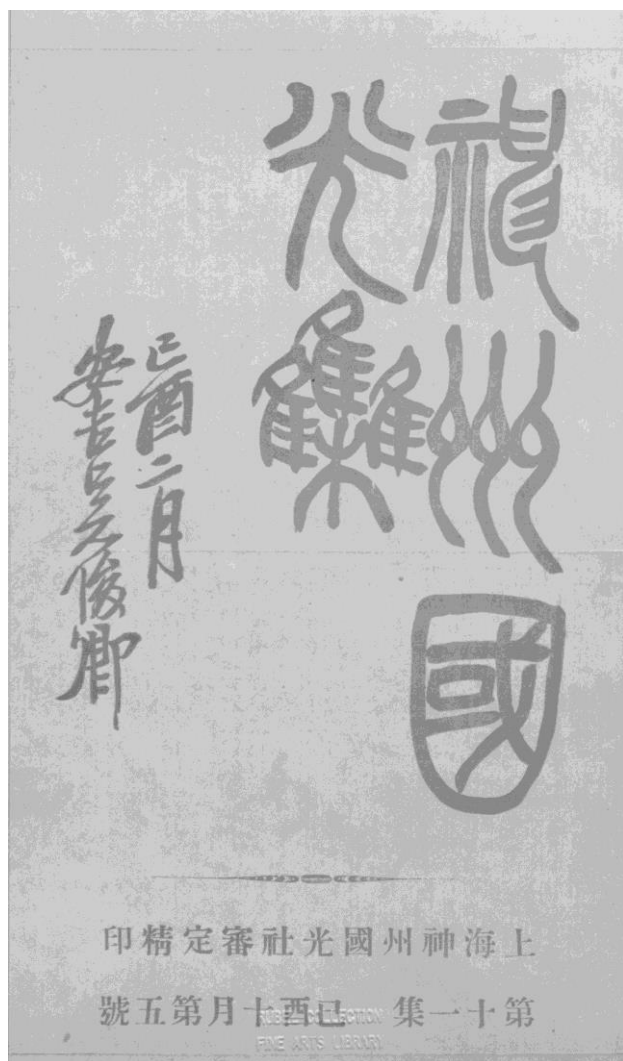 神州國
光集
己酉二月
安吉吳俊卿
上海神州國光社審定精印
第十一集 己酉十月第五號
RÜBEL COLLECTION
FINE ARTS LIBRARY